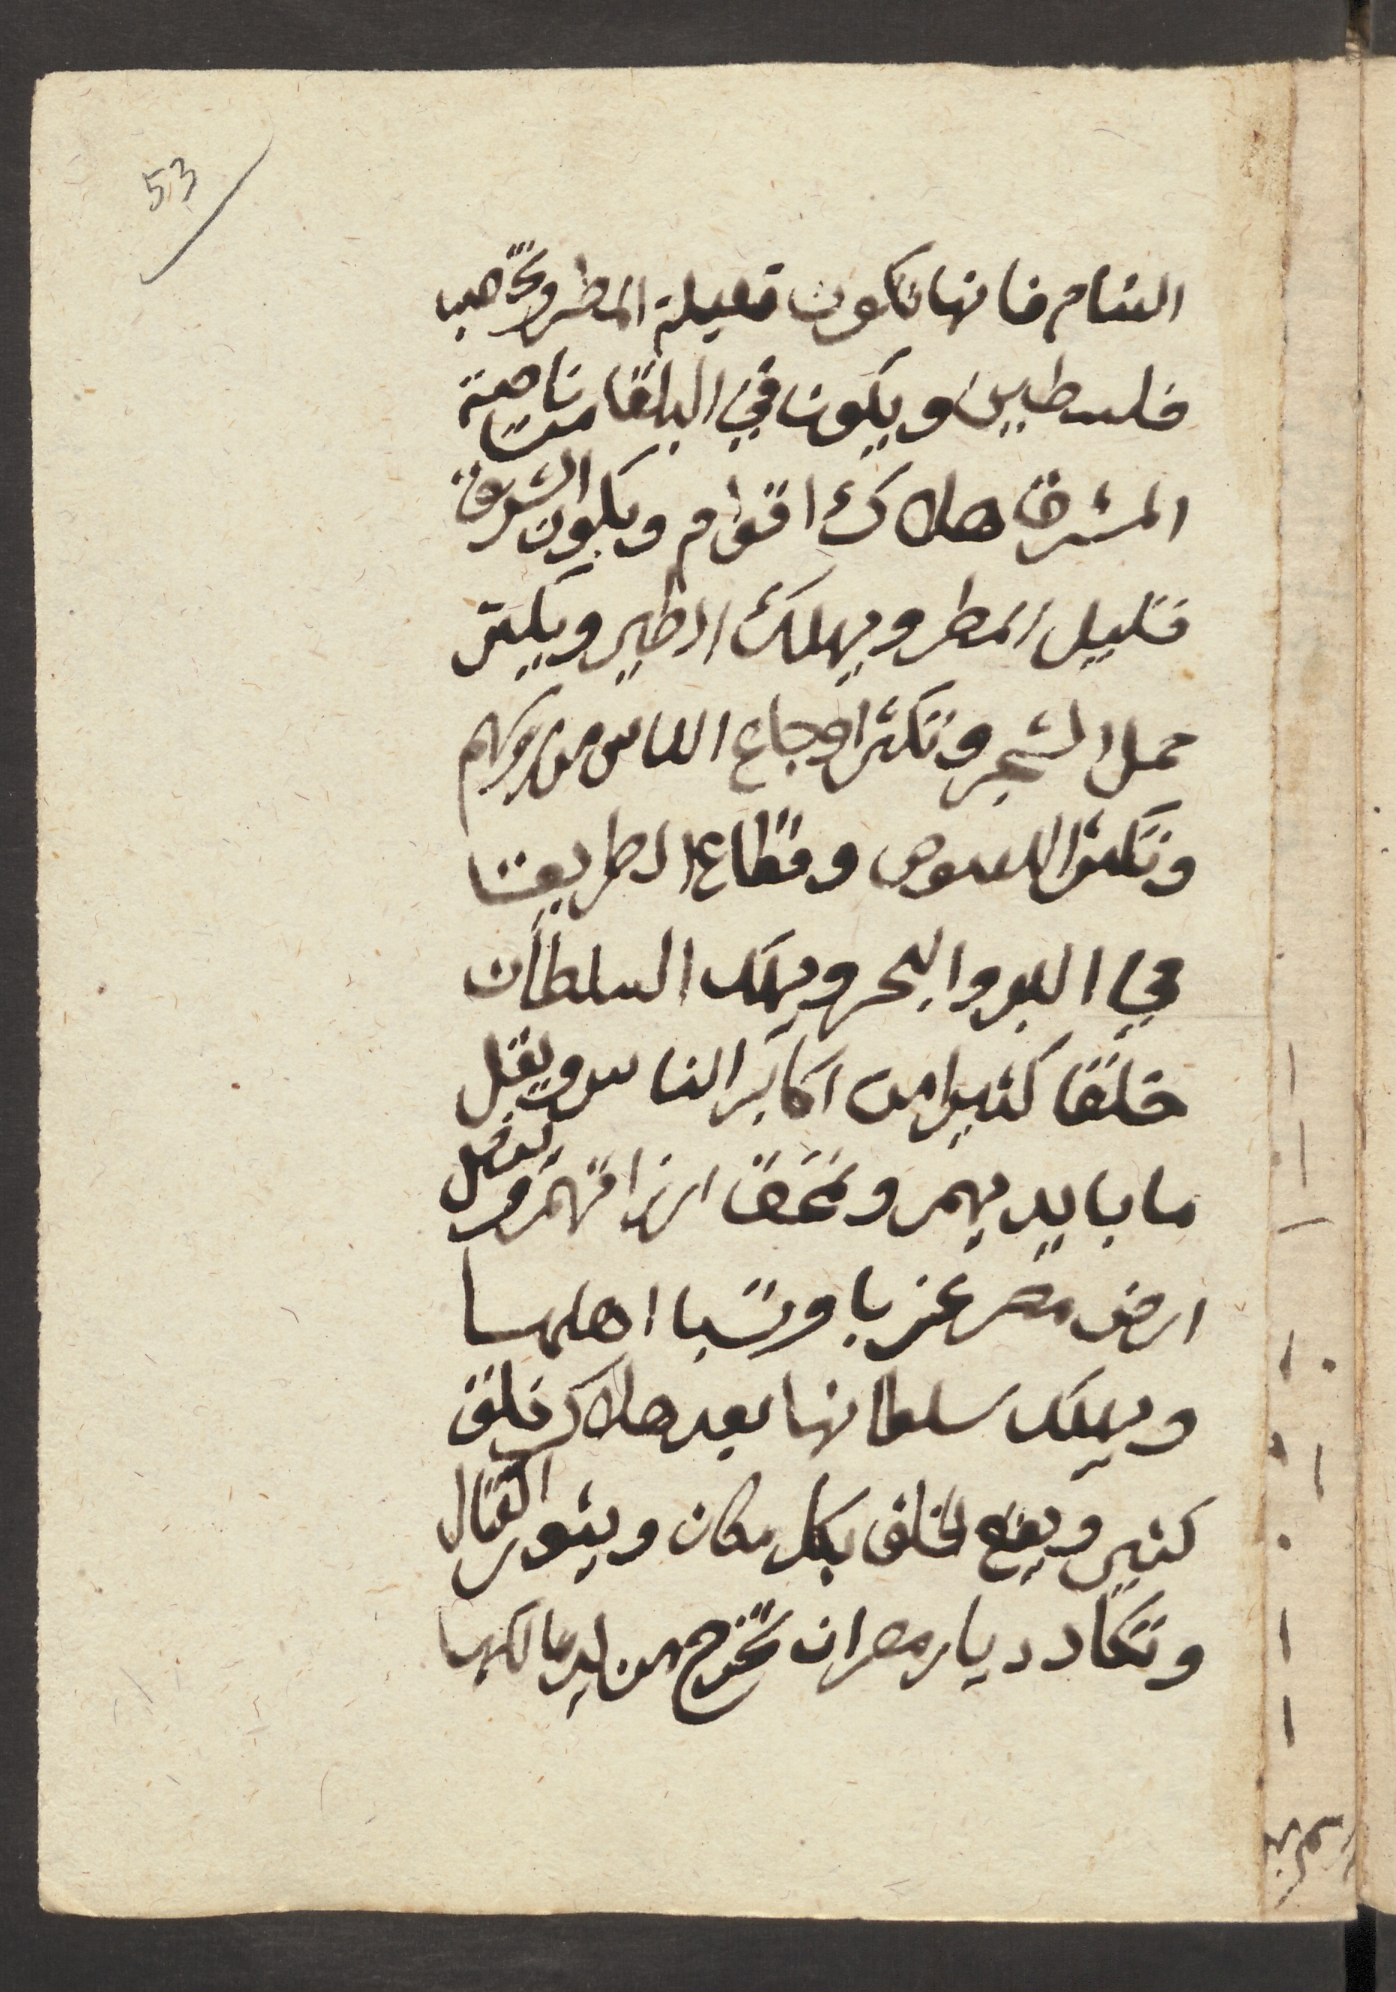 53
الشام فانها تكون قليلة المطر وتخصب
فلسطين ويكون في البلقا من ناحية
المشرق هلاك اقوام ويكون الشرق
قليل المطر ويهلك الطير ويكثر
حمل الشجر وتكثر اوجاع الناس من
وتكثر اللصوص وقطاع الطريق
في البر والبحر ويهلك السلطان
خلقا كثيرا من اكابر الناس ويقل
ما بايديهم وتخف ارزاقهم و
ارض مصر غربا وتسبا اهلها
ويهلك سلطانها بعد هلاك خلق
كثير ويقع الخلف بكل مكان ويثور القتال
وتكاد ديار مصر ان تخرج من يد مالكها